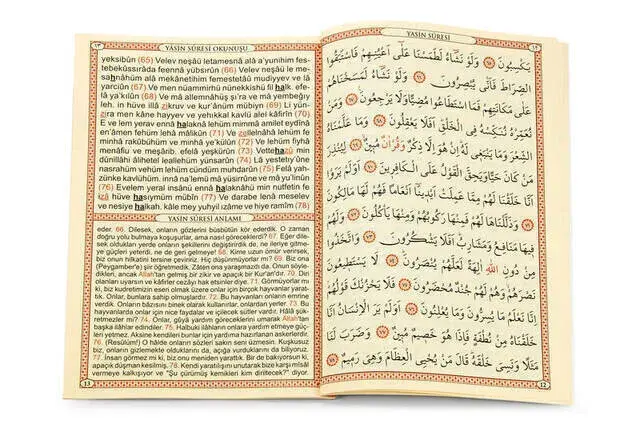 YASİN SÛRESİ
يَكْسِبُونَ ﴿٦٥﴾ وَلَوْ نَشَٓاءُ لَطَمَسْنَا عَلٰٓى اَعْيُنِهِمْ فَاسْتَبَقُوا
الصِّرَاطَ فَاَنّٰى يُبْصِرُونَ ﴿٦٦﴾ وَلَوْ نَشَٓاءُ لَمَسَخْنَاهُمْ
عَلٰى مَكَانَتِهِمْ فَمَا اسْتَطَاعُوا مُضِيًّا وَلَا يَرْجِعُونَ ﴿٦٧﴾ وَمَنْ
نُعَمِّرْهُ نُنَكِّسْهُ فِي الْخَلْقِ اَفَلَا يَعْقِلُونَ ﴿٦٨﴾ وَمَا عَلَّمْنَاهُ
الشِّعْرَ وَمَا يَنْبَغِي لَهُ اِنْ هُوَ اِلَّا ذِكْرٌ وَقُرْاٰنٌ مُبِينٌ ﴿٦٩﴾ لِيُنْذِرَ
مَنْ كَانَ حَيًّا وَيَحِقَّ الْقَوْلُ عَلَى الْكَافِرِينَ ﴿٧٠﴾ اَوَلَمْ يَرَوْا
اَنَّا خَلَقْنَا لَهُمْ مِمَّا عَمِلَتْ اَيْدِينَٓا اَنْعَامًا فَهُمْ لَهَا مَالِكُونَ
﴿٧١﴾ وَذَلَّلْنَاهَا لَهُمْ فَمِنْهَا رَكُوبُهُمْ وَمِنْهَا يَأْكُلُونَ ﴿٧٢﴾ وَلَهُمْ
فِيهَا مَنَافِعُ وَمَشَارِبُ اَفَلَا يَشْكُرُونَ ﴿٧٣﴾ وَاتَّخَذُوا
مِنْ دُونِ اللّٰهِ اٰلِهَةً لَعَلَّهُمْ يُنْصَرُونَ ﴿٧٤﴾ لَا يَسْتَطِيعُونَ
نَصْرَهُمْ وَهُمْ لَهُمْ جُنْدٌ مُحْضَرُونَ ﴿٧٥﴾ فَلَا يَحْزُنْكَ قَوْلُهُمْ
اِنَّا نَعْلَمُ مَا يُسِرُّونَ وَمَا يُعْلِنُونَ ﴿٧٦﴾ اَوَلَمْ يَرَ الْاِنْسَانُ اَنَّا
خَلَقْنَاهُ مِنْ نُطْفَةٍ فَاِذَا هُوَ خَصِيمٌ مُبِينٌ ﴿٧٧﴾ وَضَرَبَ لَنَا
مَثَلًا وَنَسِيَ خَلْقَهُ قَالَ مَنْ يُحْيِ الْعِظَامَ وَهِيَ رَمِيمٌ ﴿٧٨﴾
12
YÂSİN SÛRESİ OKUNUŞU
yeksibûn (65) Velev neşâü letamesnâ alâ a'yunihim fes-
tebekûssırâda feennâ yübsırûn (66) Velev neşâü le me-
sahnâhüm alâ mekânetihim femestetâû mudiyyev ve lâ
yarciûn (67) Ve men nüammirhü nünekkishü fil halk. efe-
lâ ya'kilûn (68) Ve mâ allemnâhüş şi'ra ve mâ yembeğıy
leh. in hüve illâ zikruv ve kur'ânüm mübiyn (69) Li yün-
zira men kâne hayyev ve yehıkkal kavlü alel kâfirîn (70)
E ve lem yerav ennâ halaknâ lehüm mimmâ amilet eydînâ
en'âmen fehüm lehâ mâlikûn (71) Ve zellelnâhâ lehüm fe
minhâ rakûbühüm ve minhâ ye'külûn (72) Ve lehüm fiyhâ
menâfiu ve meşârib. efelâ yeşkürûn (73) Vettehazû min
dûnillâhi âlihetel leallehüm yünsarûn (74) Lâ yestetıy'ûne
nasrahüm vehüm lehüm cündüm muhdarûn (75) Felâ yah-
zünke kavlühüm. innâ na'lemü mâ yüsirrûne ve mâ yu'linûn
(76) Evelem yeral insânü ennâ halaknâhü min nutfetin fe
izâ hüve hasıymüm mübîn (77) Ve darabe lenâ meselev
ve nesiye halkah. kâle mey yuhyil ızâme ve hiye ramîm (78)
YASİN SÛRESİ ANLAMI
eder. 66. Dilesek, onların gözlerini büsbütün kör ederdik. O zaman
doğru yolu bulmaya koşuşurlar, ama nasıl göreceklerdi? 67. Eğer dile-
sek oldukları yerde onların şekillerini değiştirirdik de, ne ileriye gitme-
ye güçleri yeterdi, ne de geri gelmeye! 68. Kime uzun ömür verirsek,
biz onun hilkatini tersine çeviririz. Hiç düşünmüyorlar mı? 69. Biz ona
(Peygamber'e) şiir öğretmedik. Zâten ona yaraşmazdı da. Onun söyle-
dikleri, ancak Allah'tan gelmiş bir zikir ve apaçık bir Kur'an'dır. 70. Diri
olanları uyarsın ve kâfirler cezâyı hak etsinler diye. 71. Görmüyorlar mı
ki, biz kudretimizin eseri olmak üzere onlar için birçok hayvanlar yarat-
tık. Onlar, bunlara sahip olmuşlardır. 72. Bu hayvanları onların emrine
verdik. Onların bâzısını binek olarak kullanırlar, onlardan yerler. 73. Bu
hayvanlarda onlar için nice faydalar ve içilecek sütler vardır. Hâlâ şük-
retmezler mi? 74. Onlar, güyâ yardım göreceklerini umarak Allah'tan
başka ilâhlar edindiler. 75. Halbuki ilâhların onlara yardım etmeye güç-
leri yetmez. Aksine kendileri bunlar için yardıma hazırlanan askerlerdir.
76. (Resûlüm!) O hâlde onların sözleri sakın seni üzmesin. Kuşkusuz
biz, onların gizlemekte olduklarını da, açığa vurduklarını da biliyoruz.
77. İnsan görmez mi ki, biz onu meniden yarattık. Bir de bakıyorsun ki,
apaçık düşman kesilmiş. 78. Kendi yaratılışını unutarak bize karşı misâl
vermeye kalkışıyor ve "Şu çürümüş kemikleri kim diriltecek?" diyor.
13